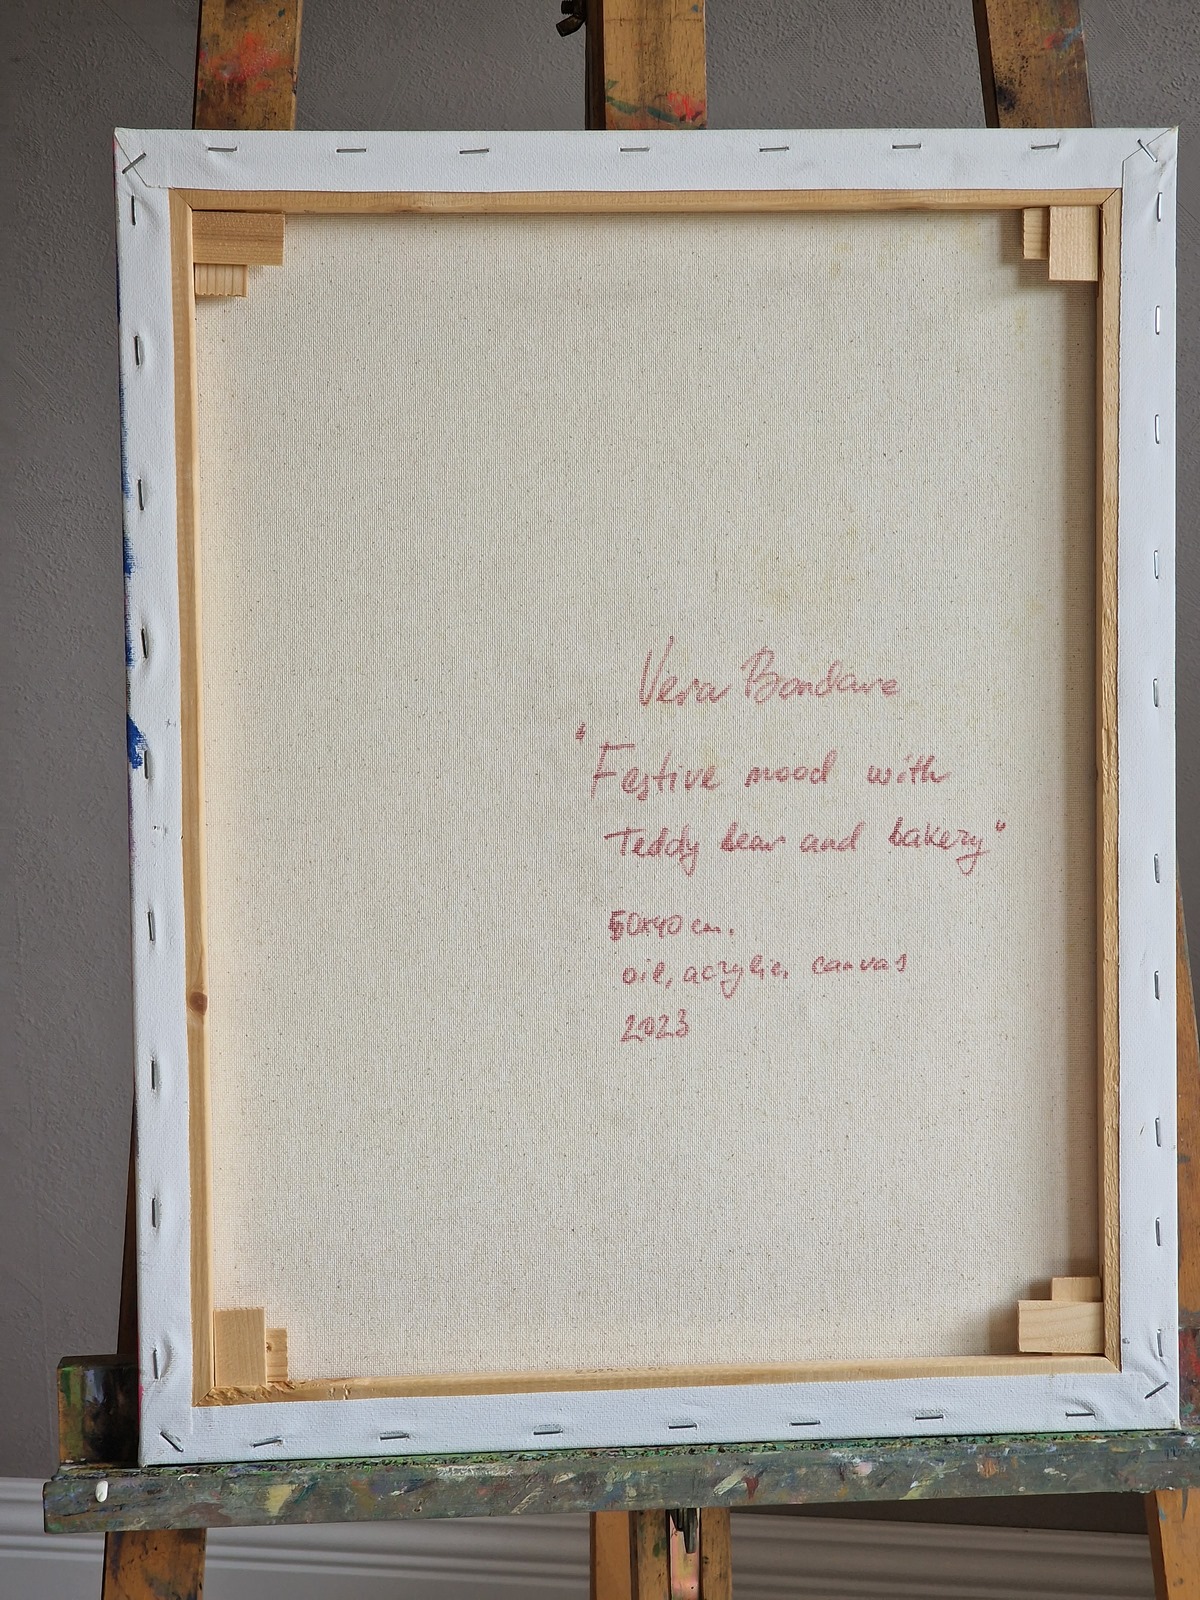 Vera Bondare
"Festive mood with
Teddy bear and bakery"
50x40 cm.
oil, acrylic, canvas
2023